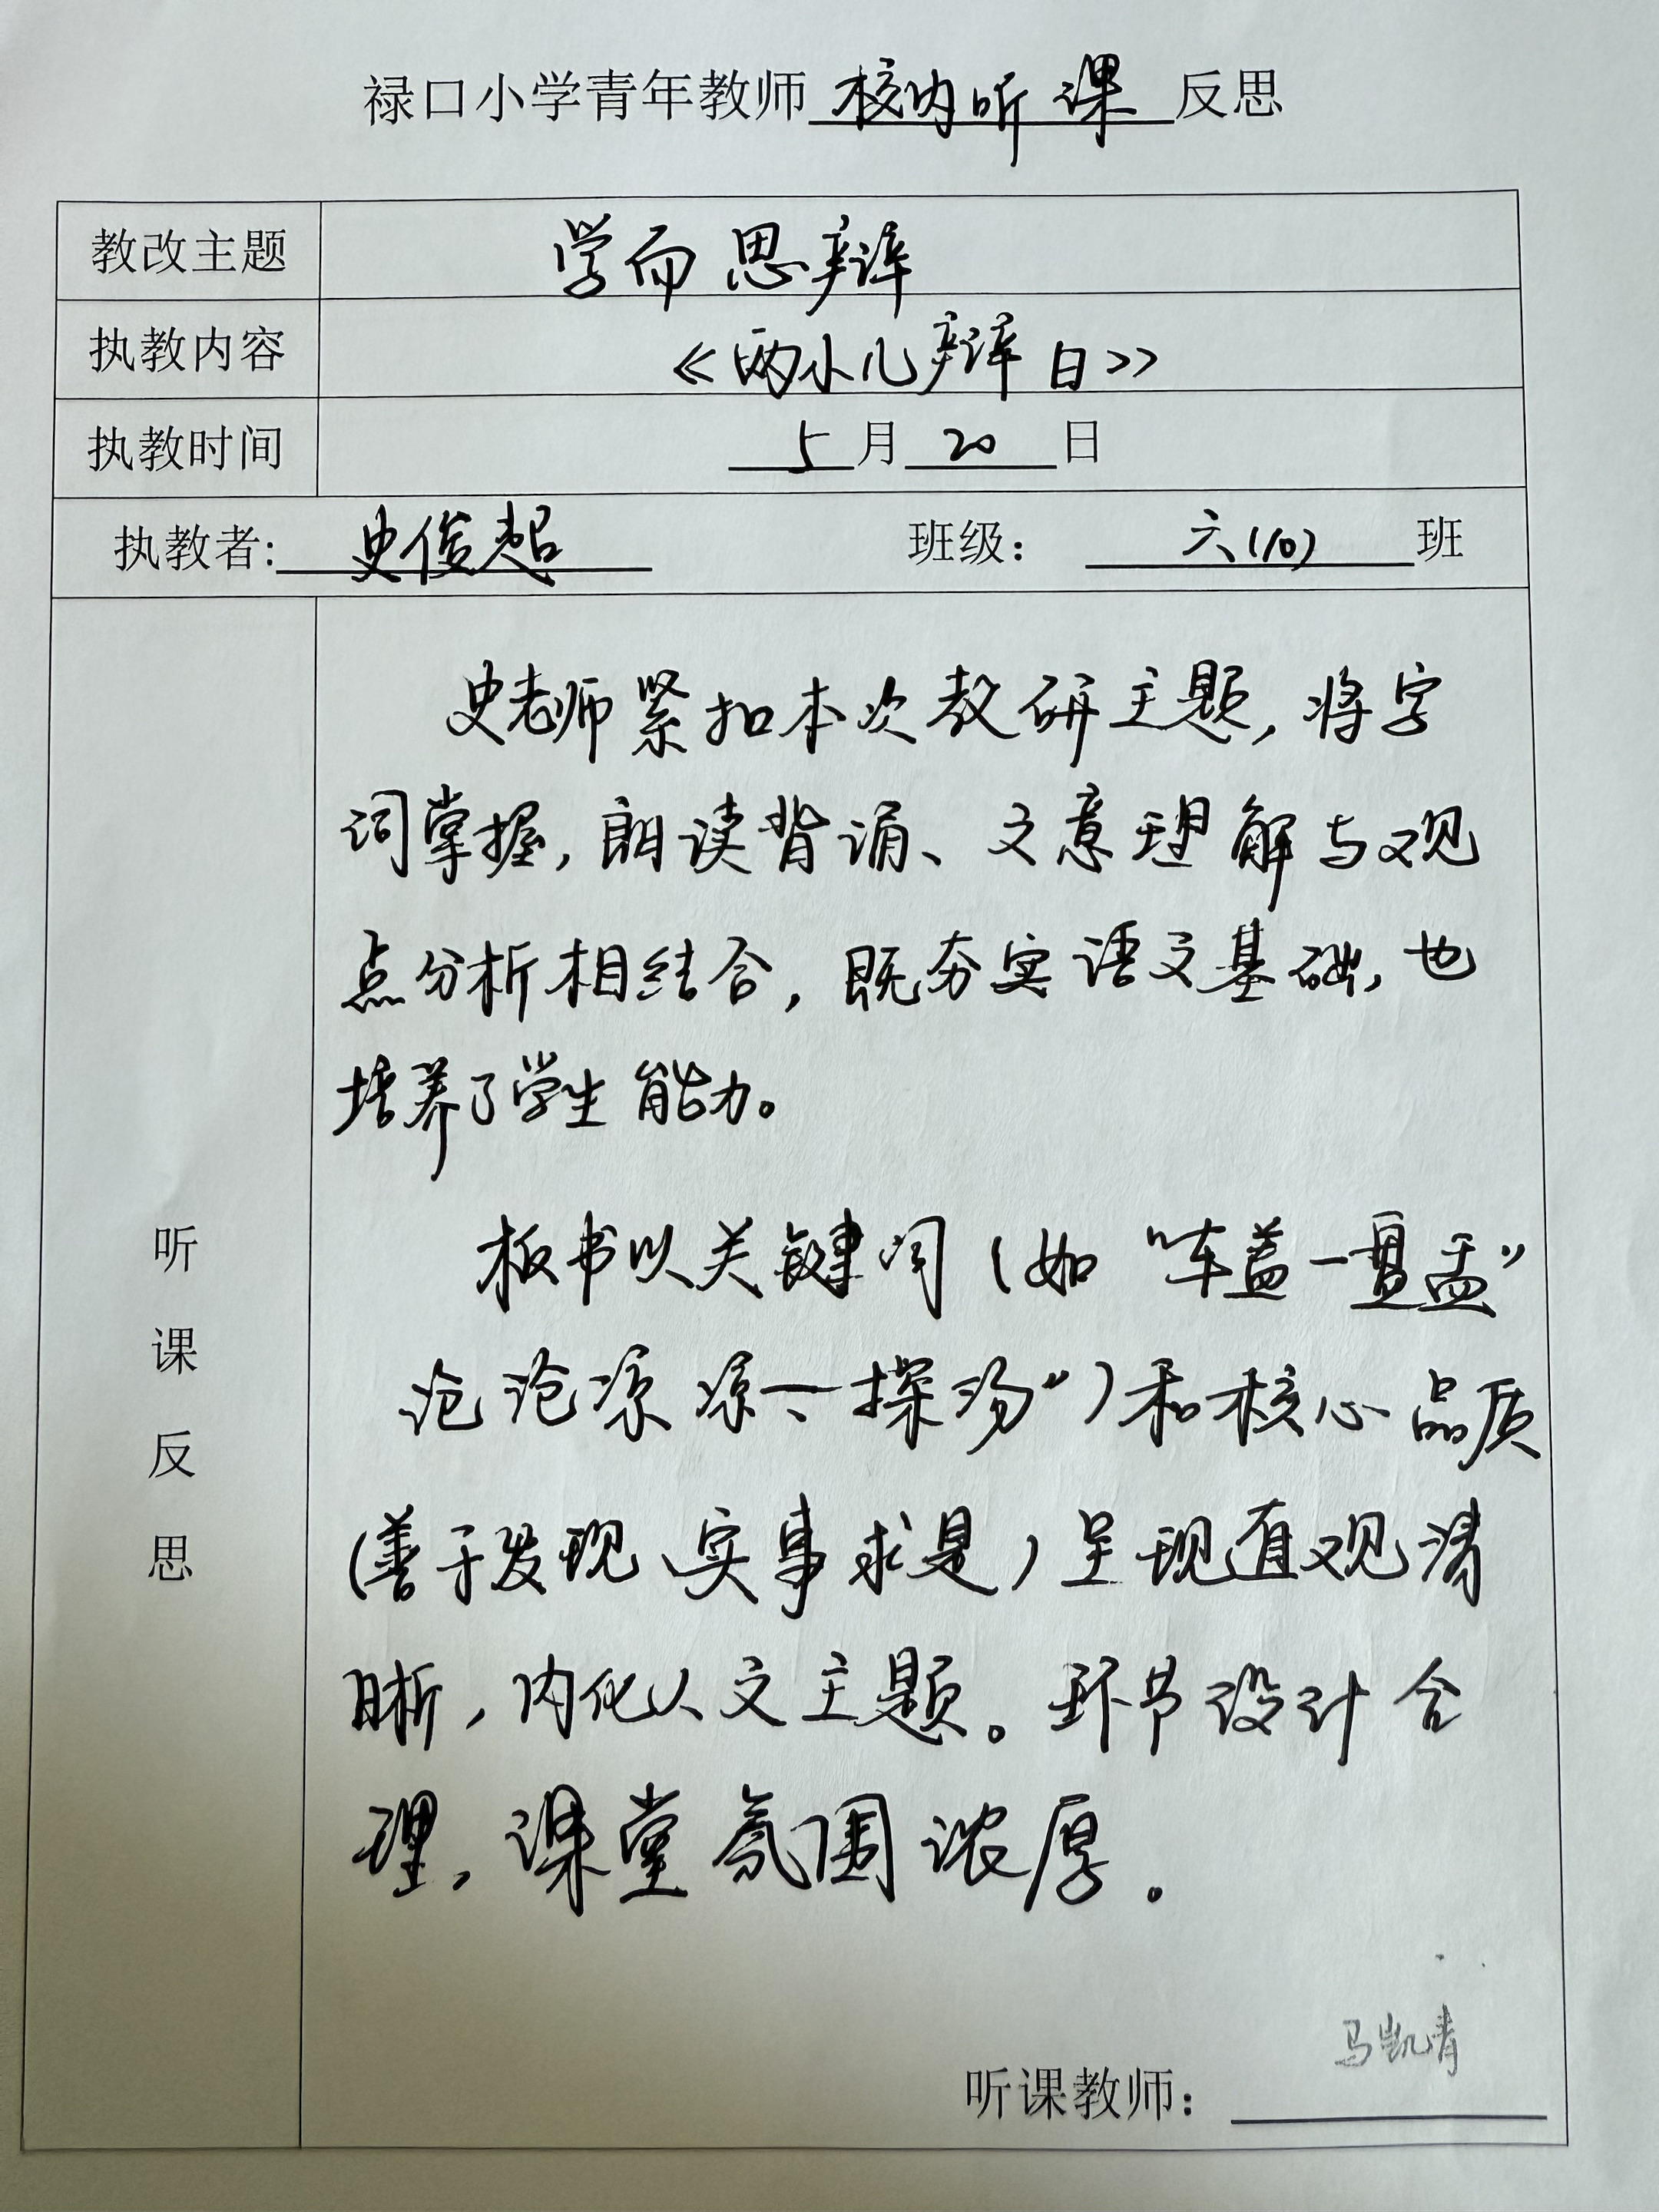 禄口小学青年教师校内听课反思
教改主题 学而思辩
执教内容 《两小儿辩日》
执教时间 5月20日
执教者: 史俊超 班级: 六(10)班
听课反思
史老师紧扣本次教研主题,将字
词掌握,朗读背诵、文意理解与观
点分析相结合,既夯实语文基础,也
培养了学生能力。
板书以关键词(如“车盖一盘盂”
沧沧凉凉——探汤”)和核心品质
(善于发现、实事求是)呈现直观清
晰,内化人文主题。环节设计合
理,课堂氛围浓厚。
马凯清
听课教师: